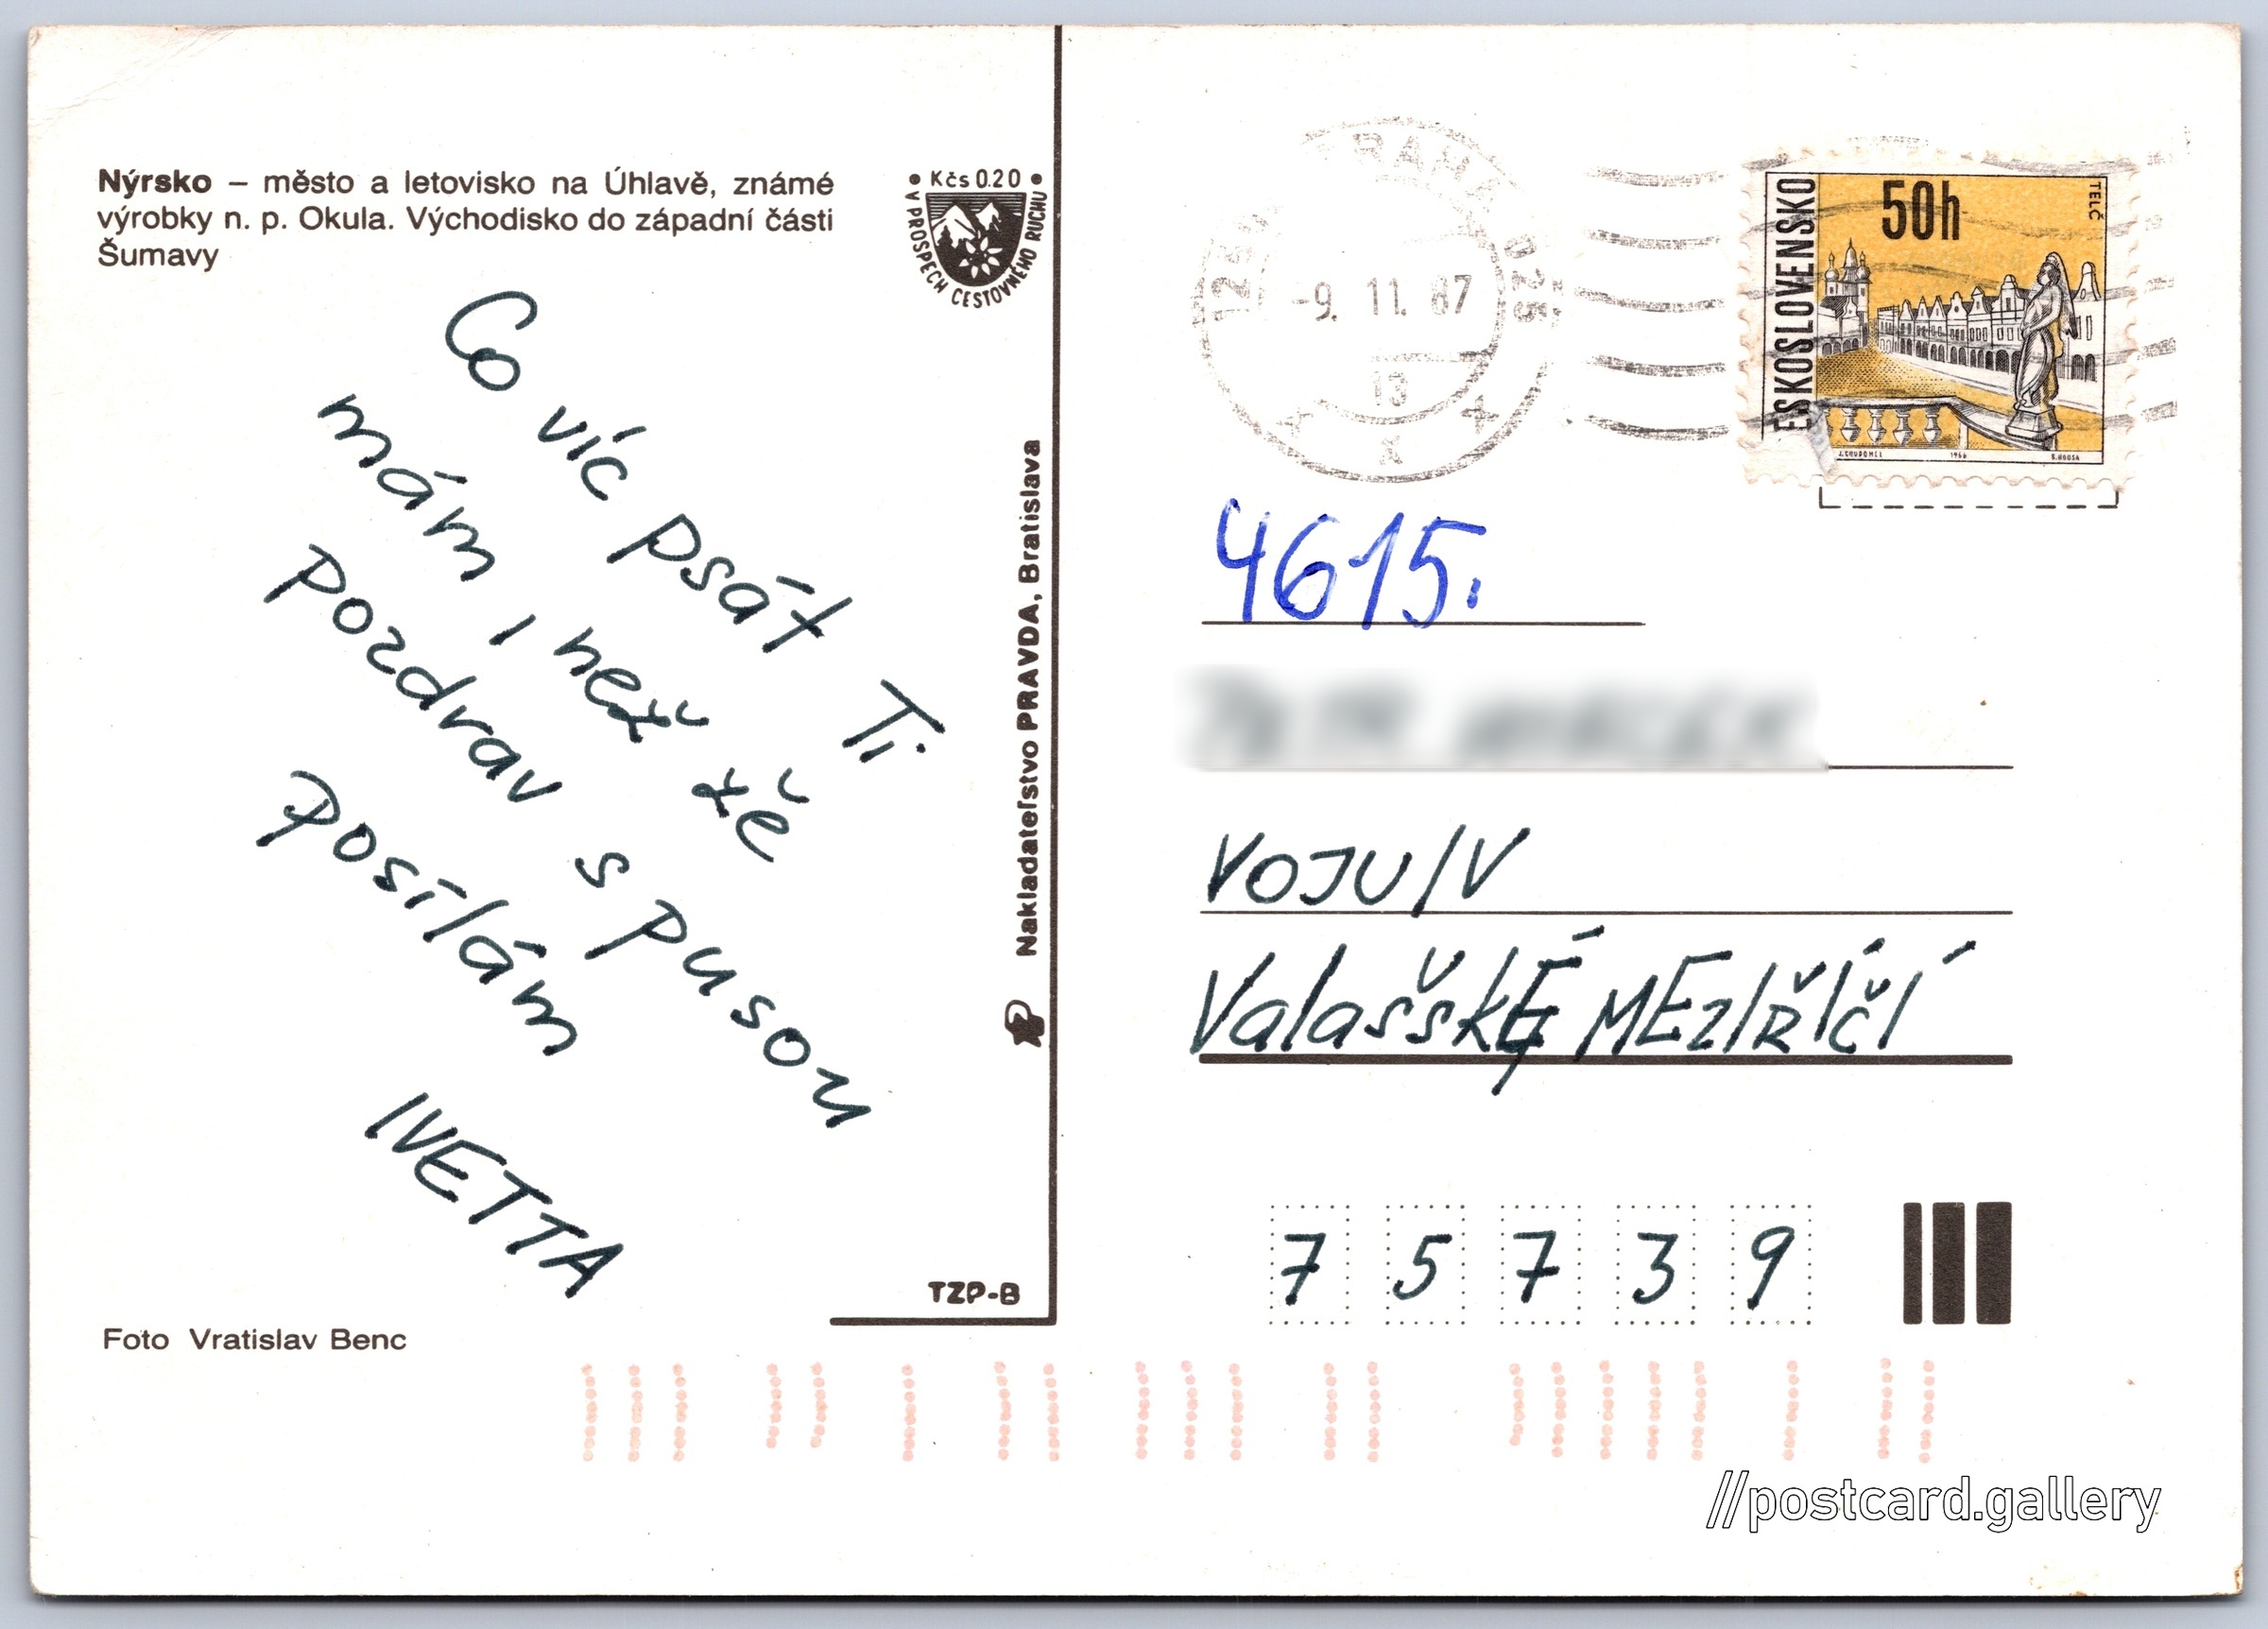 Nýrsko – město a letovisko na Úhlavě, známé
výrobky n. p. Okula. Východisko do západní části
Šumavy
• Kčs 0.20 •
V PROSPĚCH CESTOVNÉHO RUCHU
Co víc psát Ti
mám i než že
pozdrav s pusou
posílám
IVETTA
Foto Vratislav Benc
TZP-B
Nakladateľstvo PRAVDA, Bratislava
-9. 11. 87
13
ESKOSLOVENSKO
50h
TELČ
1966
4615.
VOJU/V
Valašské MEZIŘÍČÍ
7 5 7 3 9
//postcard.gallery